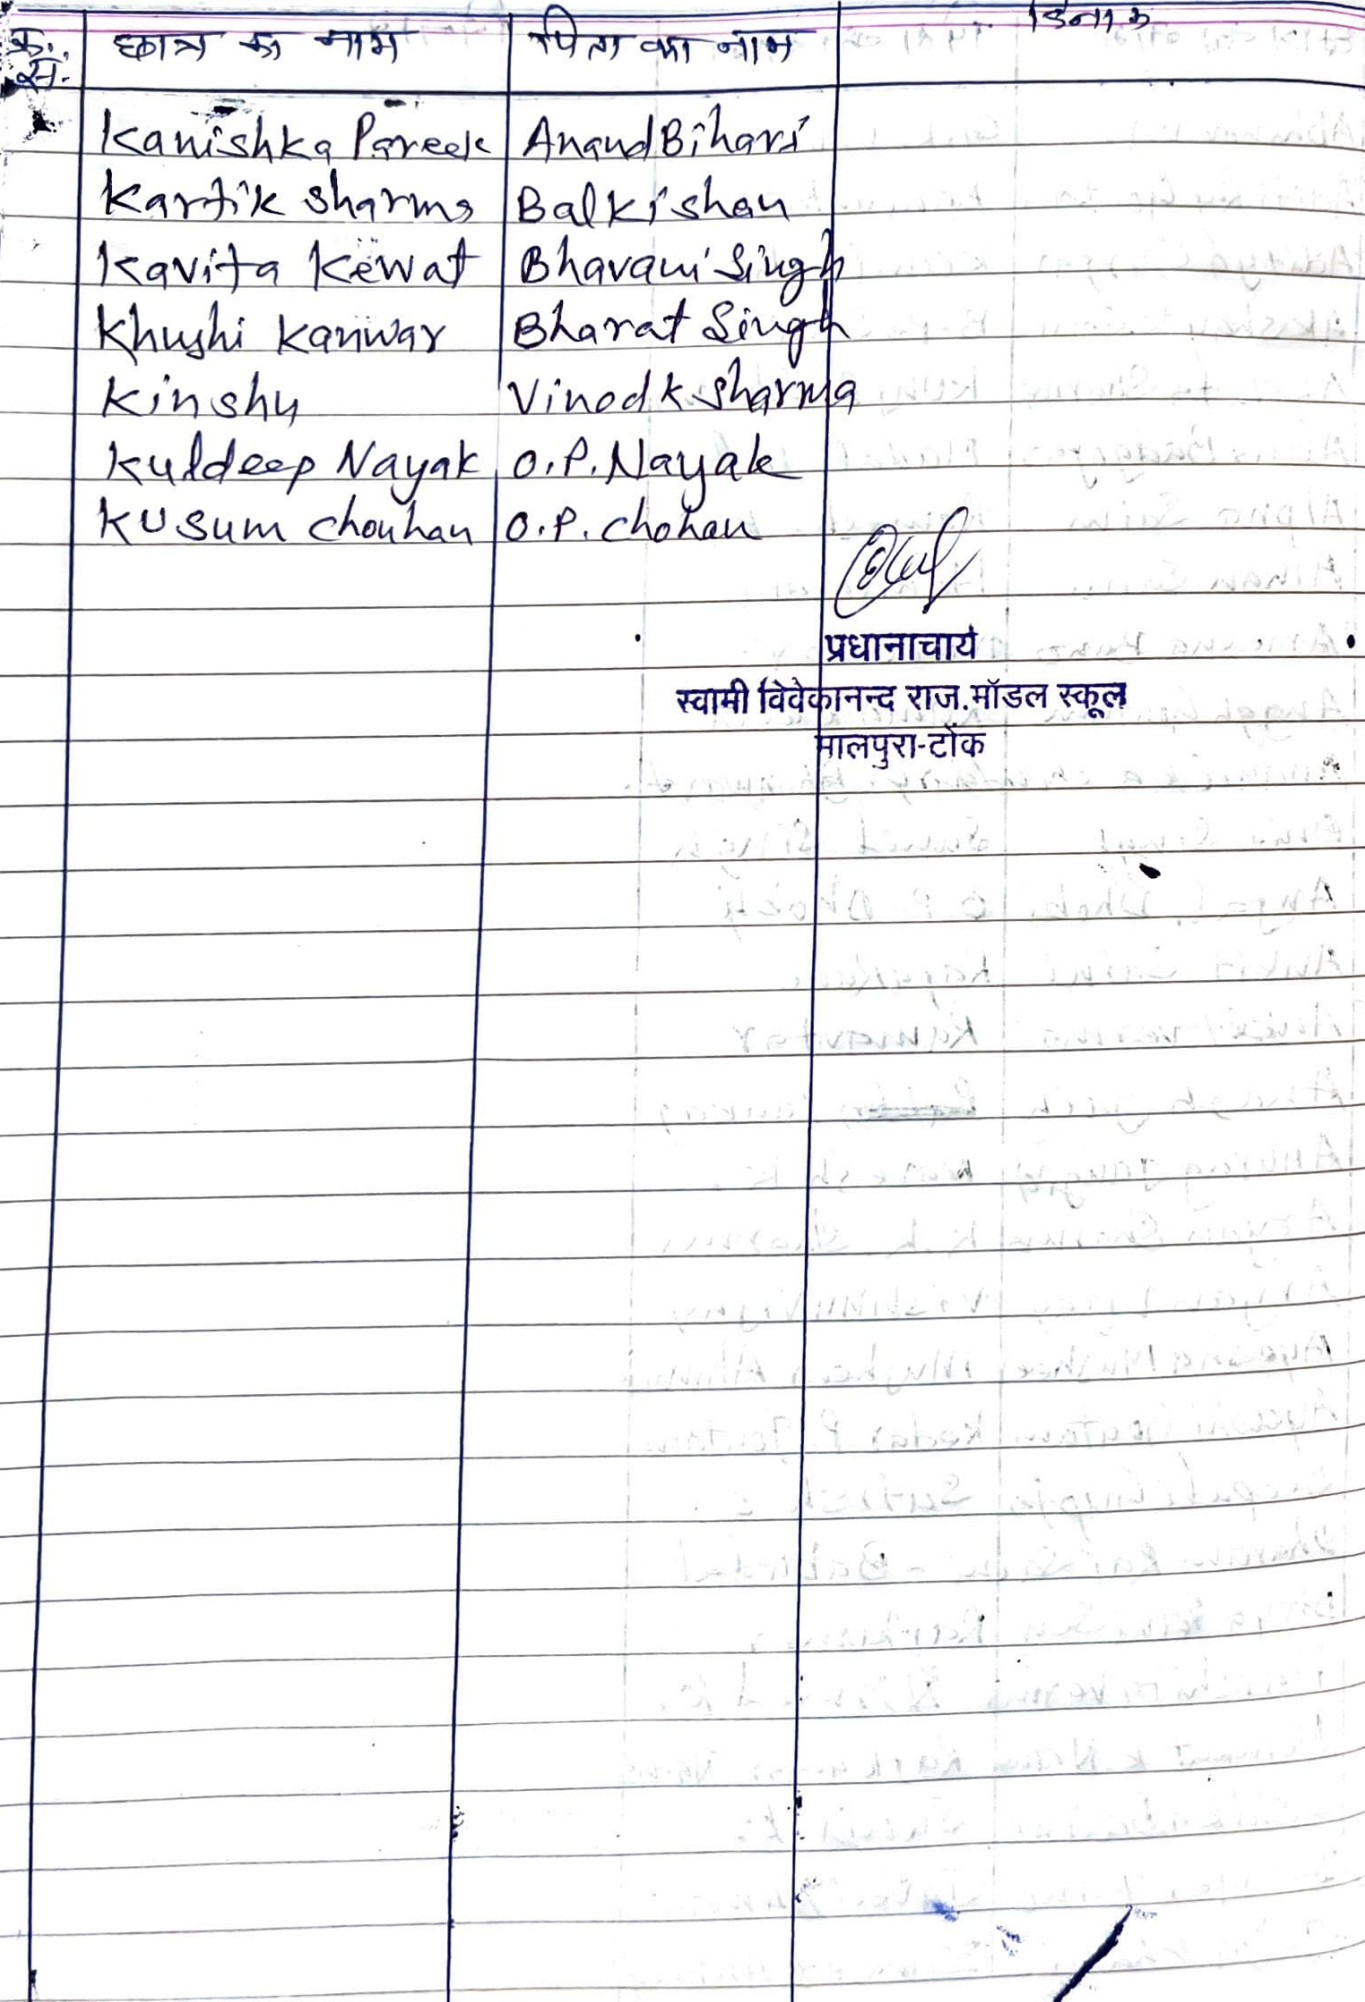 दिनांक
क्र.सं. छात्र का नाम पिता का नाम
Kanishka Pareek Anand Bihari
Kartik Sharma Balkishan
Kavita Kewat Bhavani Singh
Khushi Kanwar Bharat Singh
Kinshu Vinod K Sharma
Kuldeep Nayak O.P. Nayak
Kusum Chouhan O.P. Chohan
प्रधानाचार्य
स्वामी विवेकानन्द राज.मॉडल स्कूल
मालपुरा-टोंक